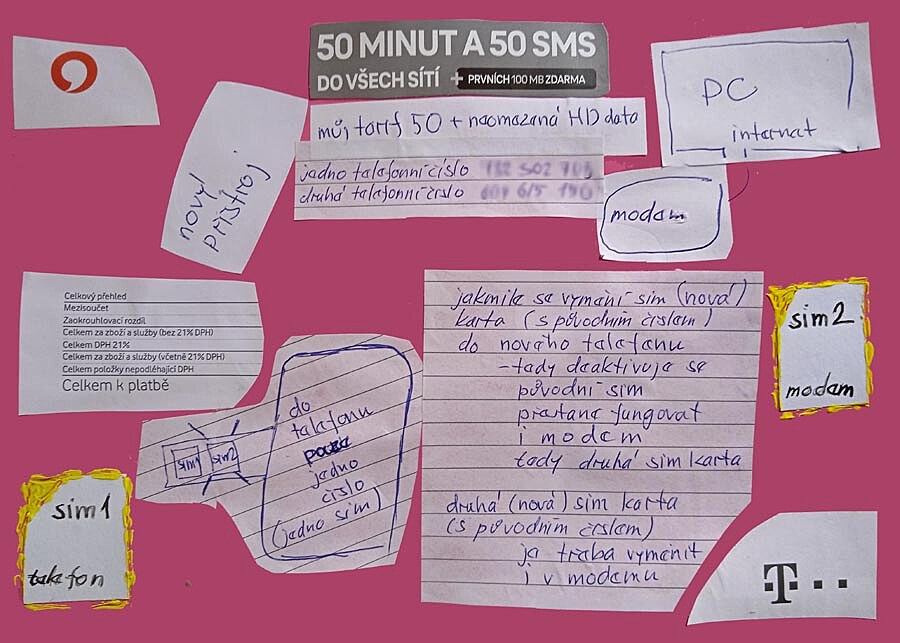 50 MINUT A 50 SMS
DO VŠECH SÍTÍ + PRVNÍCH 100 MB ZDARMA
můj tarif 50 + neomezená HD data
jedno telefonní číslo
druhé telefonní číslo
PC
internet
modem
nový
přístroj
Celkový přehled
Mezisoučet
Zaokrouhlovací rozdíl
Celkem za zboží a služby (bez 21% DPH)
Celkem DPH 21%
Celkem za zboží a služby (včetně 21% DPH)
Celkem položky nepodléhající DPH
Celkem k platbě
jakmile se vymění sim (nová)
karta (s původním číslem)
do nového telefonu
- tedy deaktivuje se
původní sim
přestane fungovat
i modem
tedy druhá sim karta
druhá (nová) sim karta
(s původním číslem)
je třeba vyměnit
i v modemu
sim 2
modem
sim1
sim2
do
telefonu
pouze
jedno
číslo
(jedno sim)
sim 1
telefon
T